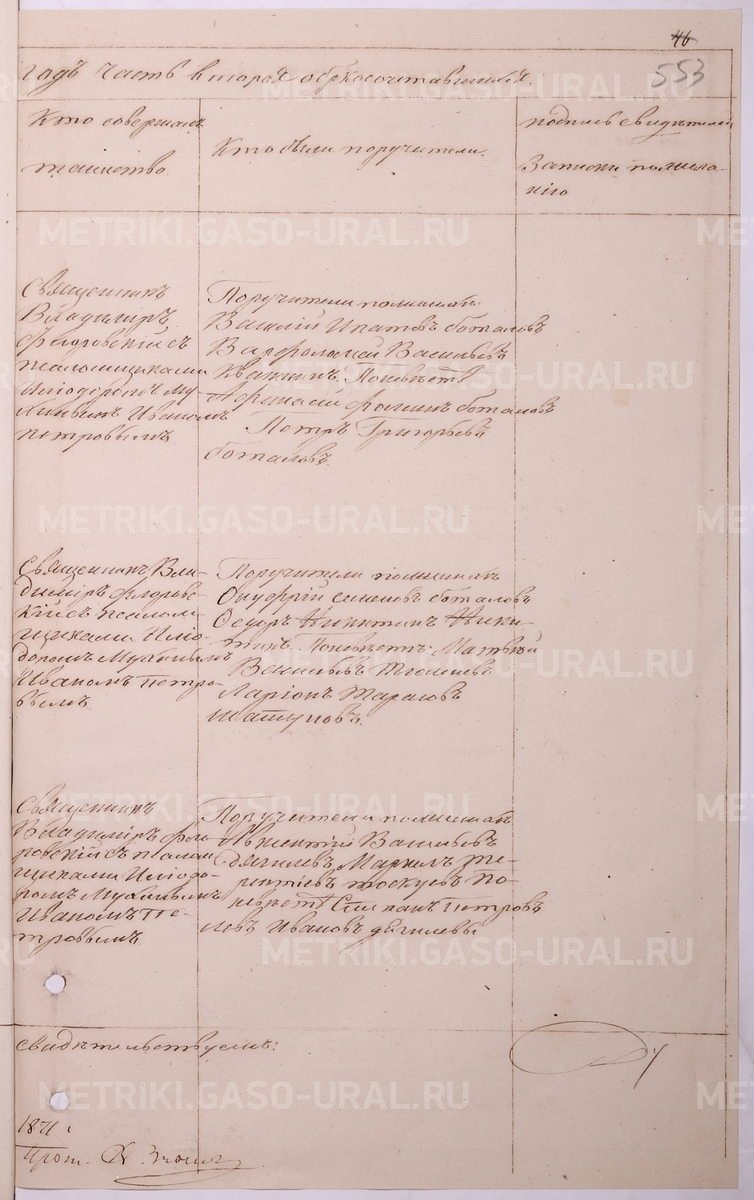 46
553
годъ часть вторая о бракосочетавшихся.
Кто совершалъ
таинство
Кто были поручители.
подпись свидѣтелей
Записки по жела-
нію
Священникъ
Владимиръ
Флоровскій съ
псаломщиками
Иліодоромъ Му-
Иваномъ
Петровымъ
Поручители по женихѣ
Василій Ипатовъ Боталовъ
Варфоломей Васильевъ
По невѣстѣ
Фоминъ Боталовъ
Петръ Григорьевъ
Боталовъ
Священникъ Вла-
димиръ Флоров-
скій съ псалом-
щиками Иліо-
доромъ
Иваномъ Петро-
вымъ
Поручители по женихѣ
Онуфрій Семеновъ Боталовъ
Ѳедоръ Никитинъ Ники-
тинъ По невѣстѣ Матвѣй
Васильевъ
Ларіонъ Тарасовъ
Шатуновъ.
Священникъ
Владимиръ Фло-
ровскій съ псалом
щиками Иліодо-
ромъ
Иваномъ Пе-
тровымъ
Поручители по женихѣ
Васильевъ
Дягилевъ Маркелъ Те-
рентьевъ По-
невѣстѣ Степанъ Петровъ
Левъ Ивановъ Дягилевы
Свидѣтельствуемъ:
1871 г
Прот.
METRIKI.GASO-URAL.RU